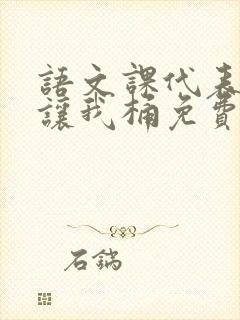 語文課代表
讓我桶免費
石鍋